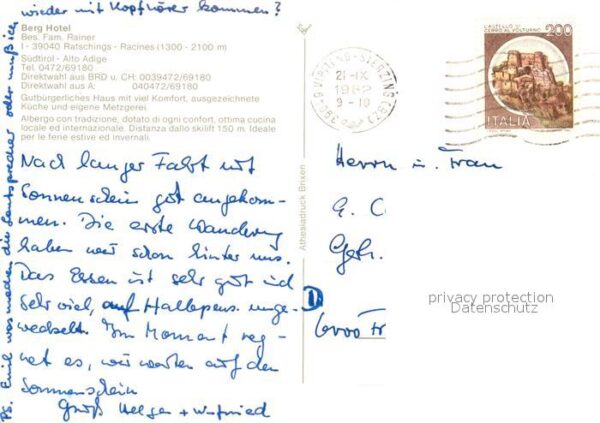 wieder mit Kopfhörer kommen?
Berg Hotel
Bes. Fam. Rainer
I - 39040 Ratschings - Racines (1300 - 2100 m)
Südtirol - Alto Adige
Tel. 0472/69180
Direktwahl aus BRD u. CH: 0039472/69180
Direktwahl aus A: 040472/69180
Gutbürgerliches Haus mit viel Komfort, ausgezeichnete
Küche und eigene Metzgerei.
Albergo con trazione, dotato di ogni confort, ottima cucina
locale ed internazionale. Distanza dallo skilift 150 m. Ideale
per le ferie estive ed invernali.
Nach langer Fahrt mit
Sonnenschein gut angekom-
men. Die erste Wanderung
haben wir schon hinter uns.
Das Essen ist sehr gut und
sehr viel, auf Halbpens. umge-
wechselt. Im Moment reg-
net es, wir warten auf den
Sonnenschein
Gruß Helga + Winfried
PS. Emil was machen die Lautsprecher oder muß ich
Athesiadruck Brixen
CASTELLO DI
CERRO AL VOLTURNO
200
ITALIA
39049 VIPITENO - STERZING
21-IX
1982
9-10
Herrn u. Frau
E. C
Gebr.
D
6000 Fr
privacy protection
Datenschutz